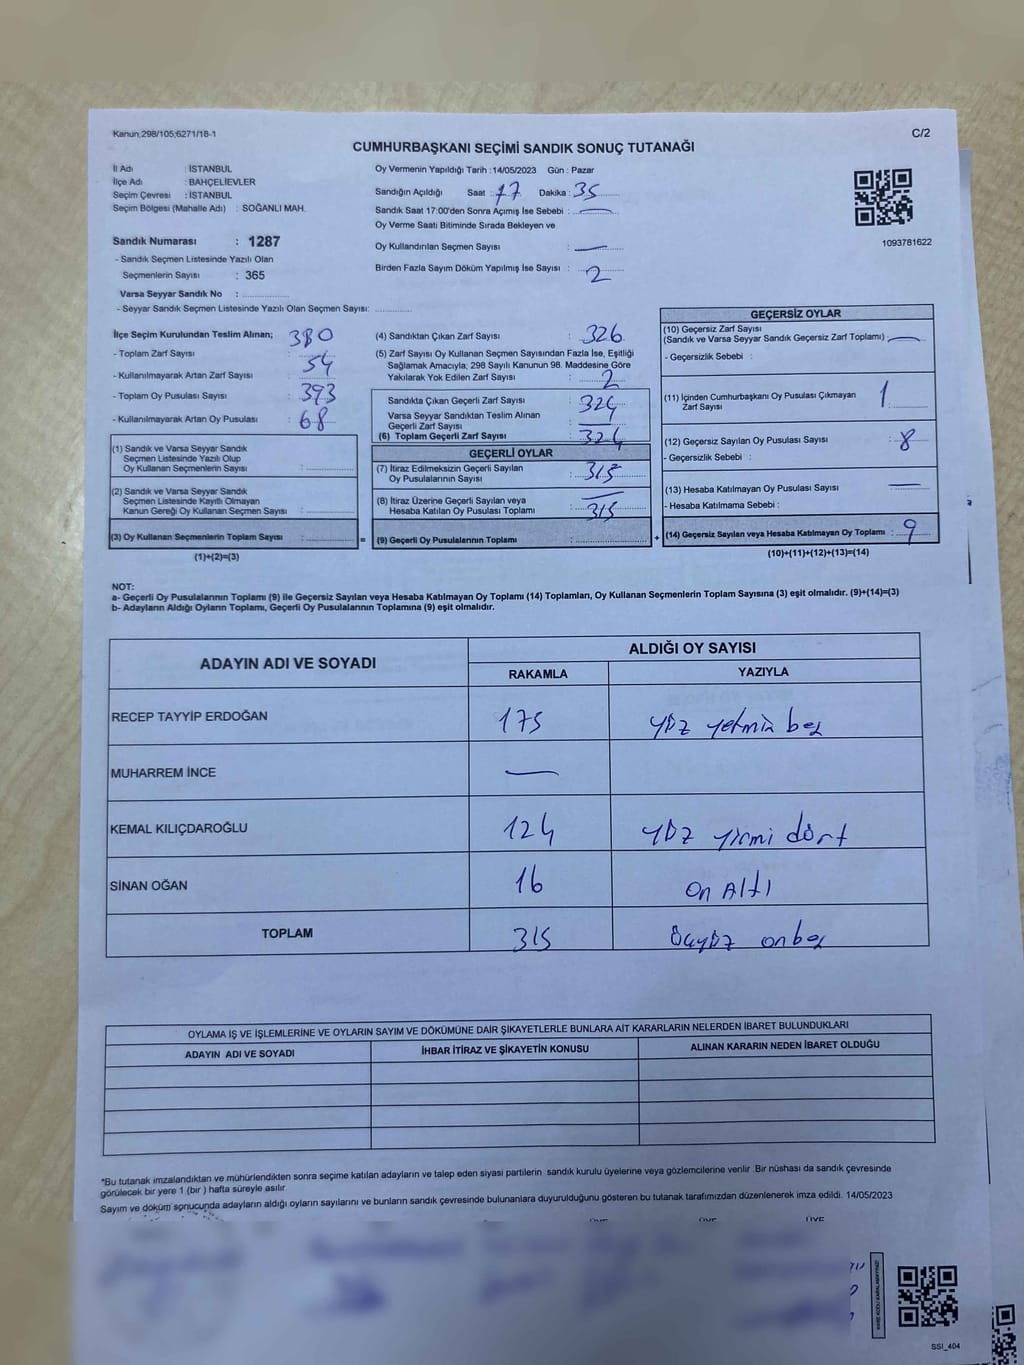 Kanun;298/105;6271/18-1
C/2
CUMHURBAŞKANI SEÇİMİ SANDIK SONUÇ TUTANAĞI
İl Adı : İSTANBUL
İlçe Adı : BAHÇELİEVLER
Seçim Çevresi : İSTANBUL
Seçim Bölgesi (Mahalle Adı) : SOĞANLI MAH.
Sandık Numarası : 1287
- Sandık Seçmen Listesinde Yazılı Olan
Seçmenlerin Sayısı : 365
Varsa Seyyar Sandık No :
- Seyyar Sandık Seçmen Listesinde Yazılı Olan Seçmen Sayısı:
Oy Vermenin Yapıldığı Tarih : 14/05/2023 Gün : Pazar
Sandığın Açıldığı Saat : 17 Dakika : 35
Sandık Saat 17:00'den Sonra Açımış İse Sebebi : —
Oy Verme Saati Bitiminde Sırada Bekleyen ve
Oy Kullandırılan Seçmen Sayısı : —
Birden Fazla Sayım Döküm Yapılmış İse Sayısı : 2
1093781622
İlçe Seçim Kurulundan Teslim Alınan;
- Toplam Zarf Sayısı : 380
- Kullanılmayarak Artan Zarf Sayısı : 54
- Toplam Oy Pusulası Sayısı : 393
- Kullanılmayarak Artan Oy Pusulası : 68
(1) Sandık ve Varsa Seyyar Sandık
Seçmen Listesinde Yazılı Olup
Oy Kullanan Seçmenlerin Sayısı :
(2) Sandık ve Varsa Seyyar Sandık
Seçmen Listesinde Kayıtlı Olmayan
Kanun Gereği Oy Kullanan Seçmen Sayısı :
(3) Oy Kullanan Seçmenlerin Toplam Sayısı :
(1)+(2)=(3)
(4) Sandıktan Çıkan Zarf Sayısı : 326
(5) Zarf Sayısı Oy Kullanan Seçmen Sayısından Fazla İse, Eşitliği
Sağlamak Amacıyla; 298 Sayılı Kanunun 98. Maddesine Göre
Yakılarak Yok Edilen Zarf Sayısı : 2
Sandıkta Çıkan Geçerli Zarf Sayısı : 324
Varsa Seyyar Sandıktan Teslim Alınan
Geçerli Zarf Sayısı : —
(6) Toplam Geçerli Zarf Sayısı : 324
GEÇERLİ OYLAR
(7) İtiraz Edilmeksizin Geçerli Sayılan
Oy Pusulalarının Sayısı : 315
(8) İtiraz Üzerine Geçerli Sayılan veya
Hesaba Katılan Oy Pusulası Toplamı : — 315
= (9) Geçerli Oy Pusulalarının Toplamı :
GEÇERSİZ OYLAR
(10) Geçersiz Zarf Sayısı
(Sandık ve Varsa Seyyar Sandık Geçersiz Zarf Toplamı) : —
- Geçersizlik Sebebi :
(11) İçinden Cumhurbaşkanı Oy Pusulası Çıkmayan
Zarf Sayısı : 1
(12) Geçersiz Sayılan Oy Pusulası Sayısı : 8
- Geçersizlik Sebebi :
(13) Hesaba Katılmayan Oy Pusulası Sayısı —
- Hesaba Katılmama Sebebi :
+ (14) Geçersiz Sayılan veya Hesaba Katılmayan Oy Toplamı : 9
(10)+(11)+(12)+(13)=(14)
NOT:
a- Geçerli Oy Pusulalarının Toplamı (9) ile Geçersiz Sayılan veya Hesaba Katılmayan Oy Toplamı (14) Toplamları, Oy Kullanan Seçmenlerin Toplam Sayısına (3) eşit olmalıdır. (9)+(14)=(3)
b- Adayların Aldığı Oyların Toplamı, Geçerli Oy Pusulalarının Toplamına (9) eşit olmalıdır.
ADAYIN ADI VE SOYADI ALDIĞI OY SAYISI
RAKAMLA YAZIYLA
RECEP TAYYİP ERDOĞAN 175 yüz yetmiş beş
MUHARREM İNCE —
KEMAL KILIÇDAROĞLU 124 yüz yirmi dört
SİNAN OĞAN 16 on Altı
TOPLAM 315 üçyüz onbeş
OYLAMA İŞ VE İŞLEMLERİNE VE OYLARIN SAYIM VE DÖKÜMÜNE DAİR ŞİKAYETLERLE BUNLARA AİT KARARLARIN NELERDEN İBARET BULUNDUKLARI
ADAYIN ADI VE SOYADI İHBAR İTİRAZ VE ŞİKAYETİN KONUSU ALINAN KARARIN NEDEN İBARET OLDUĞU
*Bu tutanak imzalandıktan ve mühürlendikten sonra seçime katılan adayların ve talep eden siyasi partilerin sandık kurulu üyelerine veya gözlemcilerine verilir .Bir nüshası da sandık çevresinde
görülecek bir yere 1 (bir ) hafta süreyle asılır.
Sayım ve döküm sonucunda adayların aldığı oyların sayılarını ve bunların sandık çevresinde bulunanlara duyurulduğunu gösteren bu tutanak tarafımızdan düzenlenerek imza edildi. 14/05/2023
ÜYE ÜYE ÜYE
SSI_404